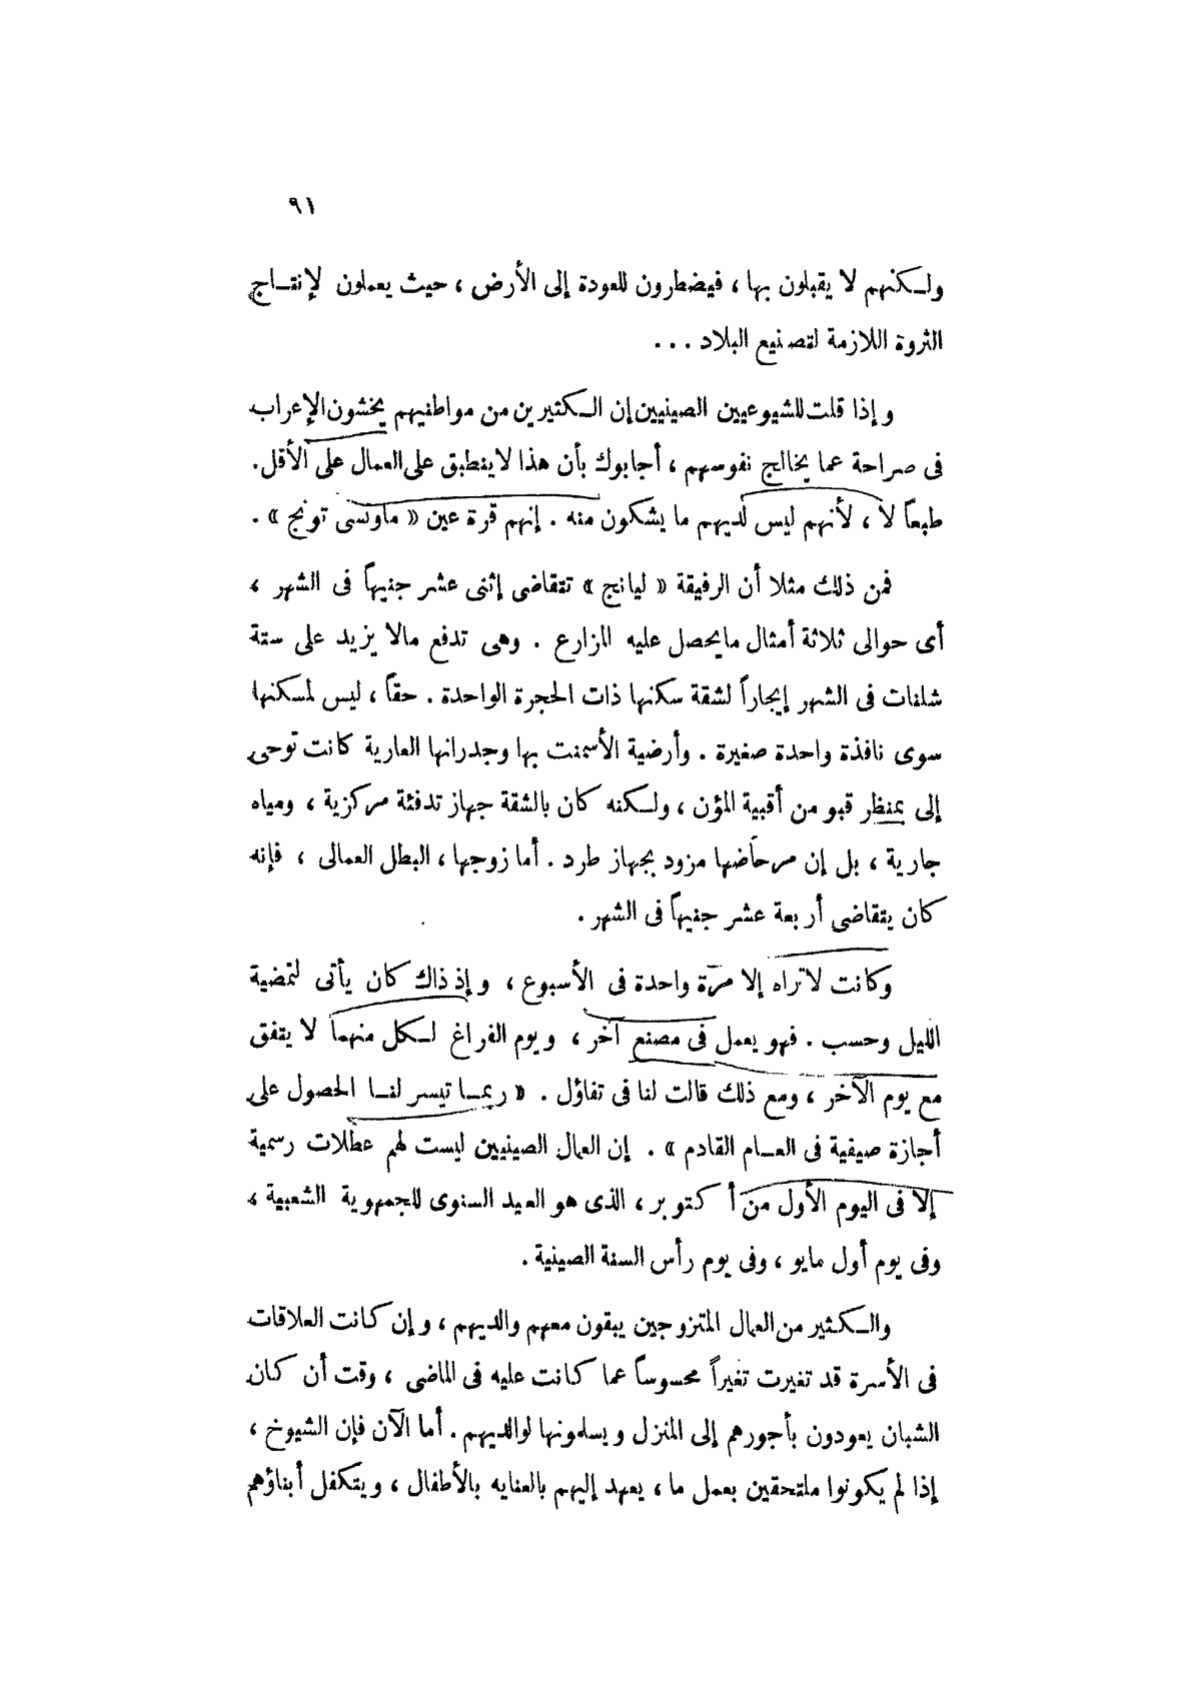 ٩١
ولكنهم لا يقبلون بها ، فيضطرون للعودة إلى الأرض ، حيث يعملون لإنتاج
الثروة اللازمة لتصنيع البلاد ...
وإذا قلت للشيوعيين الصينيين إن الكثيرين من مواطنيهم يخشون الإعراب
فى صراحة عما يخالج نفوسهم ، أجابوك بأن هذا لا ينطبق على العمال على الأقل .
طبعاً لا ، لأنهم ليس لديهم ما يشكون منه . إنهم قرة عين « ماوتسى تونج » .
فمن ذلك مثلا أن الرفيقة « ليانج » تتقاضى إثنى عشر جنيهاً فى الشهر ،
أى حوالى ثلاثة أمثال مايحصل عليه المزارع . وهى تدفع مالا يزيد على ستة
شلنات فى الشهر إيجاراً لشقة سكنها ذات الحجرة الواحدة . حقاً ، ليس لمسكنها
سوى نافذة واحدة صغيرة . وأرضية الأسمنت بها وجدرانها العارية كانت توحى
إلى بمنظر قبو من أقبية المؤن ، ولكنه كان بالشقة جهاز تدفئة مركزية ، ومياه
جارية ، بل إن مرحاضها مزود بجهاز طرد . أما زوجها ، البطل العمالى ، فإنه
كان يتقاضى أربعة عشر جنيهاً فى الشهر .
وكانت لاتراه إلا مرّة واحدة فى الأسبوع ، وإذ ذاك كان يأتى لتمضية
الليل وحسب . فهو يعمل فى مصنع آخر ، ويوم الفراغ لكل منهما لا يتفق
مع يوم الآخر ، ومع ذلك قالت لنا فى تفاؤل . « ربما تيسر لنا الحصول على
أجازة صيفية فى العام القادم » . إن العمال الصينيين ليست لهم عطلات رسمية
إلا فى اليوم الأول من أكتوبر ، الذى هو العيد السنوى للجمهورية الشعبية ،
وفى يوم أول مايو ، وفى يوم رأس السنة الصينية .
والكثير من العمال المتزوجين يبقون معهم والديهم ، وإن كانت العلاقات
فى الأسرة قد تغيرت تغيراً محسوساً عما كانت عليه فى الماضى ، وقت أن كان
الشبان يعودون بأجورهم إلى المنزل ويسلمونها لوالديهم . أما الآن فإن الشيوخ ،
إذا لم يكونوا ملتحقين بعمل ما ، يعهد إليهم بالعنايه بالأطفال ، ويتكفل أبناؤهم